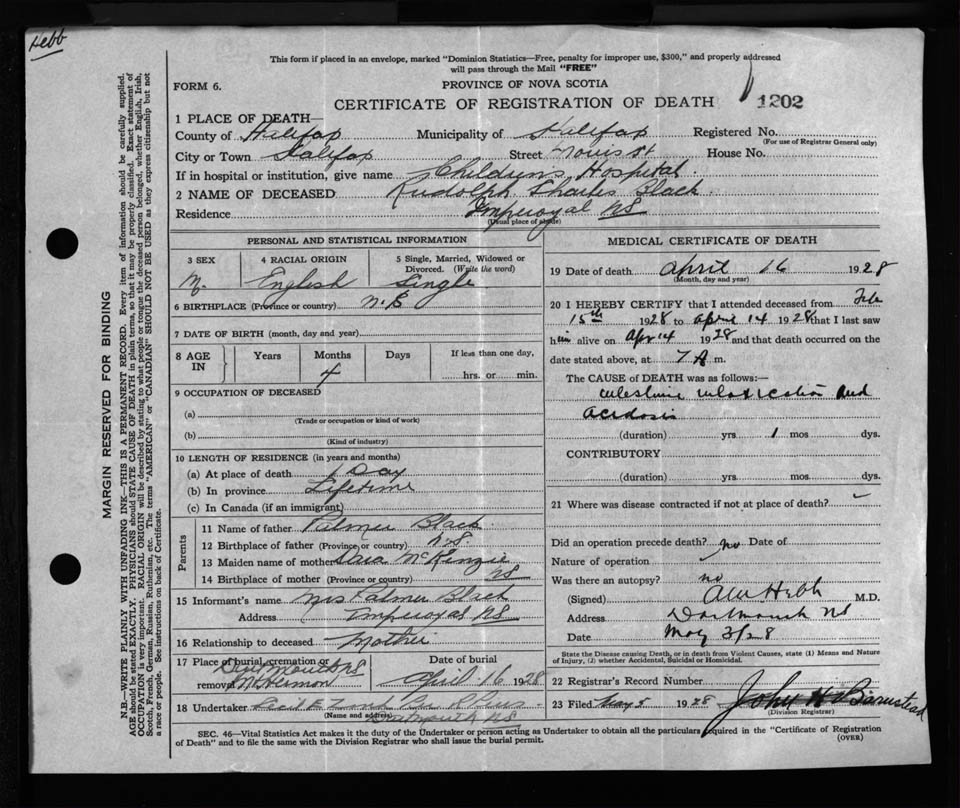 Hebb
This form if placed in an envelope, marked "Dominion Statistics—Free, penalty for improper use, $300," and properly addressed
will pass through the Mail "FREE"
FORM 6.
PROVINCE OF NOVA SCOTIA
CERTIFICATE OF REGISTRATION OF DEATH
1202
1 PLACE OF DEATH—
County of Halifax Municipality of Halifax Registered No.
(For use of Registrar General only)
City or Town Halifax Street Morris St House No.
If in hospital or institution, give name Childrens Hospital
2 NAME OF DECEASED Rudolph Charles Black
Residence Imperoyal NS
(Usual place of abode)
PERSONAL AND STATISTICAL INFORMATION
3 SEX
M.
4 RACIAL ORIGIN
English
5 Single, Married, Widowed or
Divorced. (Write the word)
Single
6 BIRTHPLACE (Province or country)
7 DATE OF BIRTH (month, day and year)
8 AGE IN
Years Months Days If less than one day,
4
hrs. or min.
9 OCCUPATION OF DECEASED
(a)
(Trade or occupation or kind of work)
(b)
(Kind of industry)
10 LENGTH OF RESIDENCE (in years and months)
(a) At place of death 1 Day
(b) In province Lifetime
(c) In Canada (if an immigrant)
Parents
11 Name of father Palmer Black
12 Birthplace of father (Province or country) N.S.
13 Maiden name of mother McKenzie
14 Birthplace of mother (Province or country) NS
15 Informant's name Mrs Palmer Black
Address Imperoyal NS
16 Relationship to deceased Mother
17 Place of burial, cremation or
removal Dartmouth NS
Mt Hermon
Date of burial
April 16 1928
18 Undertaker
(Name and address)
Dartmouth NS
MEDICAL CERTIFICATE OF DEATH
19 Date of death April 16 1928
(Month, day and year)
20 I HEREBY CERTIFY that I attended deceased from Feb
15th 1928 to April 14 1928 that I last saw
him alive on Apr 14 1928 and that death occurred on the
date stated above, at 7 A m.
The CAUSE OF DEATH was as follows:—
intestinal intoxication and
acidosis
(duration) yrs. 1 mos. dys.
CONTRIBUTORY
(duration) yrs. mos. dys.
21 Where was disease contracted if not at place of death?
Did an operation precede death? no Date of
Nature of operation
Was there an autopsy? no
(Signed) Hebb M.D.
Address Dartmouth NS
Date May 2/28
State the Disease causing Death, or in death from Violent Causes, state (1) Means and Nature
of Injury, (2) whether Accidental, Suicidal or Homicidal.
22 Registrar's Record Number
23 Filed May 5 1928 John H Barnstead
(Division Registrar)
SEC. 46—Vital Statistics Act makes it the duty of the Undertaker or person acting as Undertaker to obtain all the particulars required in the "Certificate of Registration
of Death" and to file the same with the Division Registrar who shall issue the burial permit.
(OVER)
MARGIN RESERVED FOR BINDING
N.B.—WRITE PLAINLY WITH UNFADING INK—THIS IS A PERMANENT RECORD. Every item of information should be carefully supplied.
AGE should be stated EXACTLY. PHYSICIANS should STATE CAUSE OF DEATH in plain terms, so that it may be properly classified. Exact statement of
OCCUPATION is very important. RACIAL ORIGIN will be described by stating to what people or tongue the deceased person belonged, whether English, Irish,
Scotch, French, German, Russian, Ruthenian, etc. The terms "AMERICAN" or "CANADIAN" SHOULD NOT BE USED as they express citizenship but not
a race or people. See instructions on back of Certificate.